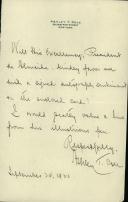 Will His Excellency, President
de Almeida kindly favor me
with a signed autograph sentiment
on the enclosed card?
I would greatly value a line
from his illustrious pen.
Respectfully,
Ashley T. Cole
September 20, 1922